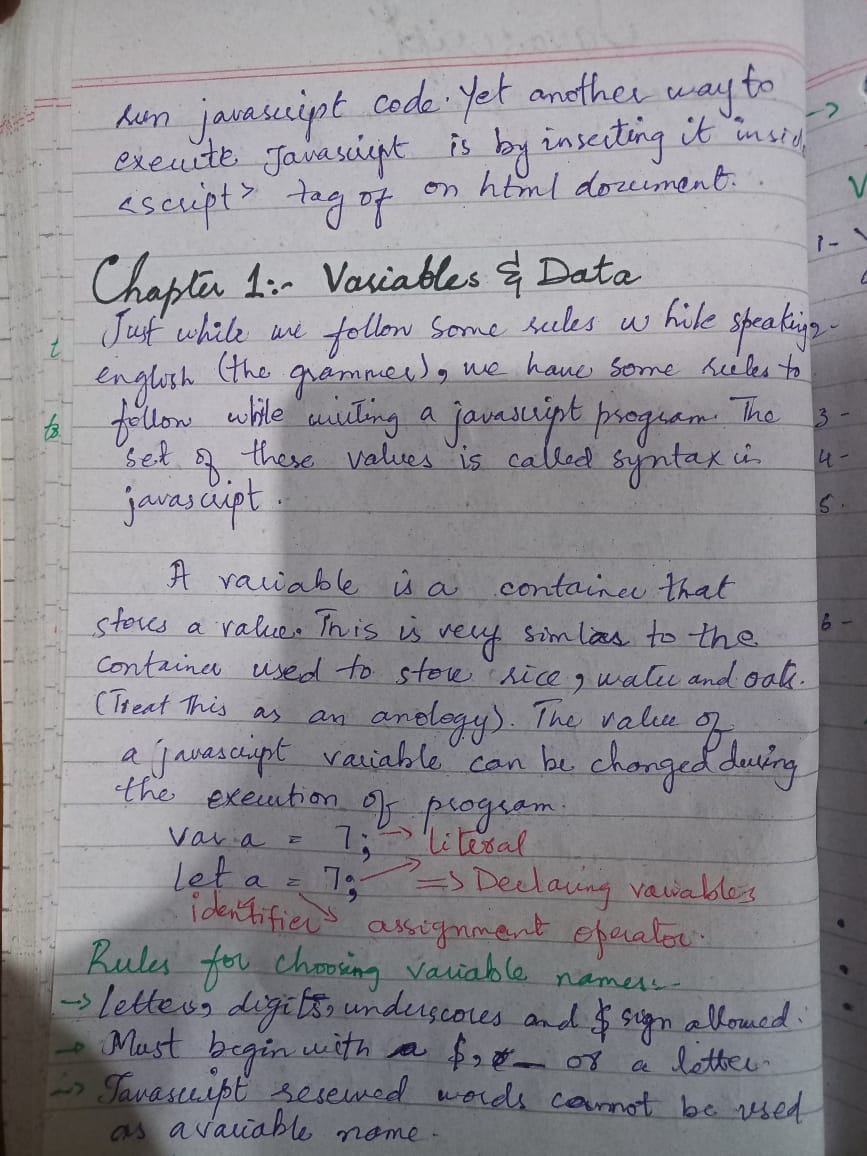 run javascript code. Yet another way to
execute Javascript is by inserting it insid
<script> tag of on html document.
Chapter 1:- Variables & Data
Just while we follow some rules while speaking
english (the grammer), we have some rules to
follow while writing a javascript program. The
set of these values is called syntax in
javascript.
A variable is a container that
stores a value. This is very simlar to the
container used to store rice, water and oats.
(Treat This as an anology). The value of
a javascript variable can be changed during
the execution of program.
Var a = 7; → literal
Let a = 7; => Declaring variables
identifier assignment operator.
Rules for choosing variable names:-
→ letters, digits, underscores and $ sign allowed.
→ Must begin with a $, _ or a letter.
→ Javascript reserved words cannot be used
as a variable name.
→
1-
3-
4-
5.
6-